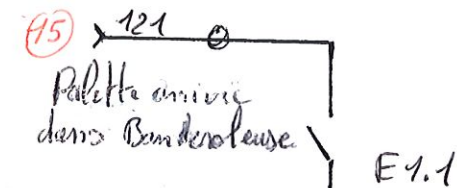 15 121
Palette arrivée
dans Banderoleuse
E1.1